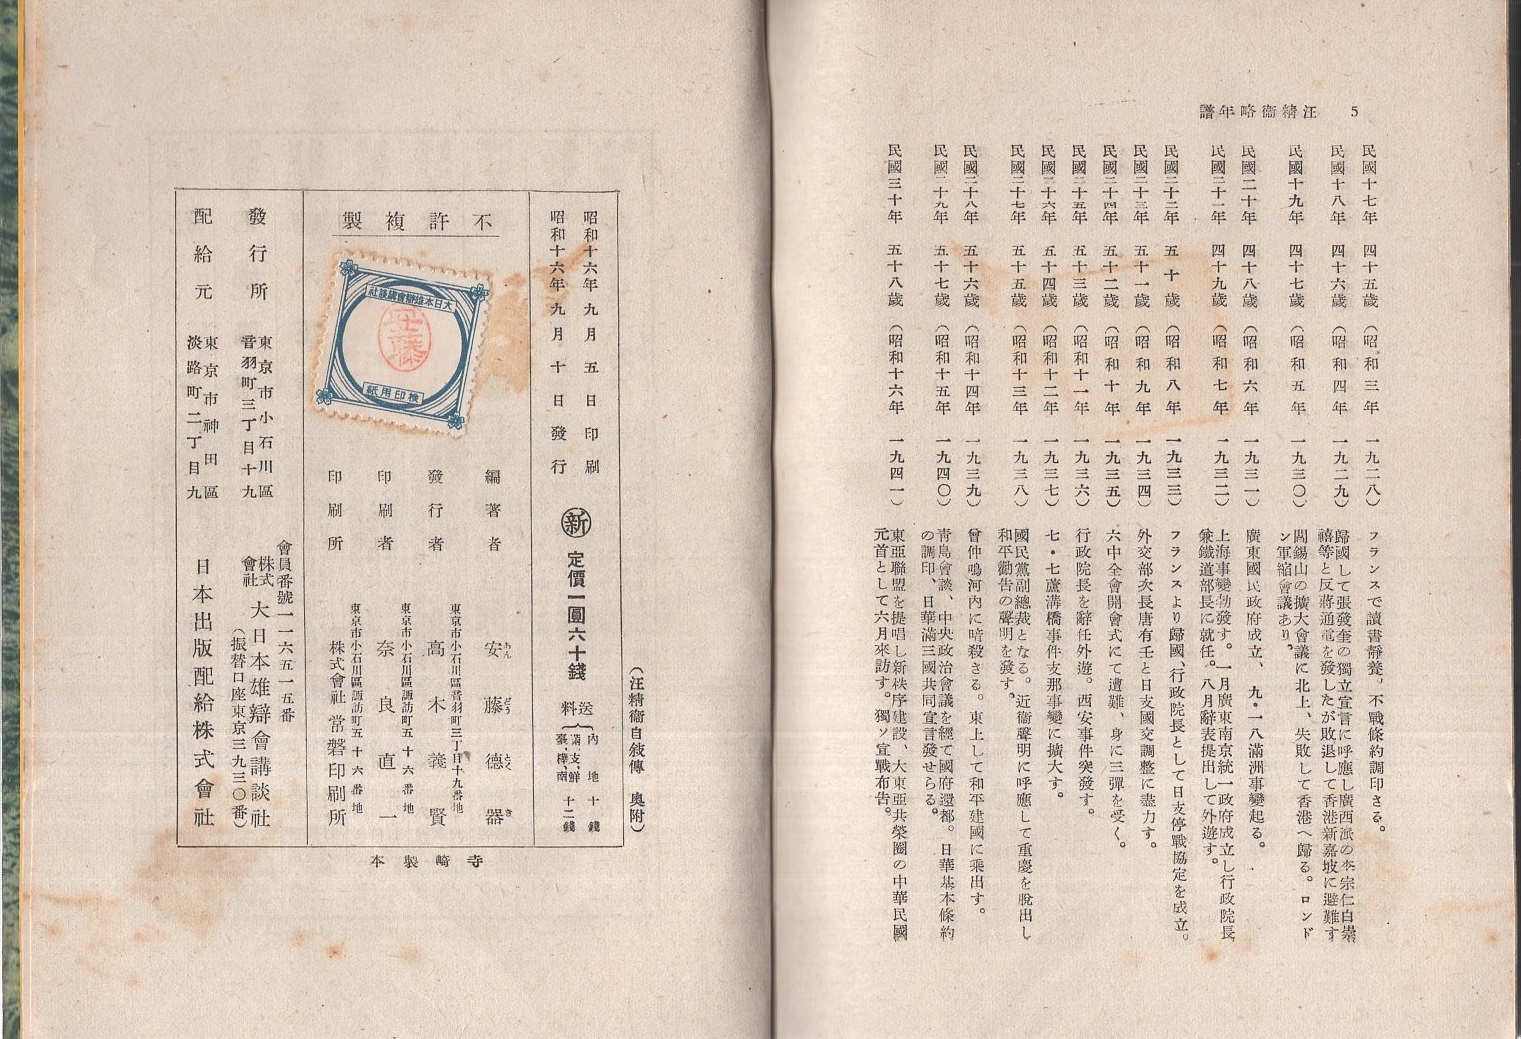 汪精衞略年譜　5
民國十七年　四十五歲（昭和三年　一九二八）　フランスで讀書靜養。不戰條約調印さる。
民國十八年　四十六歲（昭和四年　一九二九）　歸國して張發奎の獨立宣言に呼應し廣西派の李宗仁白崇
禧等と反將通電を發したが敗退して香港新嘉坡に避難す
民國十九年　四十七歲（昭和五年　一九三〇）　閻錫山の擴大會議に北上、失敗して香港へ歸る。ロンド
ン軍縮會議あり。
民國二十年　四十八歲（昭和六年　一九三一）　廣東國民政府成立、九・一八滿洲事變起る。
民國二十一年　四十九歲（昭和七年　一九三二）　上海事變勃發す。一月廣東南京統一政府成立し行政院長
兼鐵道部長に就任。八月辭表提出して外遊す。
民國二十二年　五十歲（昭和八年　一九三三）　フランスより歸國、行政院長として日支停戰協定を成立。
民國二十三年　五十一歲（昭和九年　一九三四）　外交部次長唐有壬と日支國交調整に盡力す。
民國二十四年　五十二歲（昭和十年　一九三五）　六中全會開會式にて遭難、身に三彈を受く。
民國二十五年　五十三歲（昭和十一年　一九三六）　行政院長を辭任外遊。西安事件突發す。
民國二十六年　五十四歲（昭和十二年　一九三七）　七・七蘆溝橋事件支那事變に擴大す。
民國二十七年　五十五歲（昭和十三年　一九三八）　國民黨副總裁となる。近衞聲明に呼應して重慶を脫出し
和平勸告の聲明を發す。
民國二十八年　五十六歲（昭和十四年　一九三九）　曾仲鳴河內に暗殺さる。東上して和平建國に乘出す。
民國二十九年　五十七歲（昭和十五年　一九四〇）　靑島會談、中央政治會議を經て國府還都。日華基本條約
の調印、日華滿三國共同宣言發せらる。
民國三十年　五十八歲（昭和十六年　一九四一）　東亞聯盟を提唱し新秩序建設、大東亞共榮圈の中華民國
元首として六月來訪す。獨ソ宣戰布告。
（汪精衞自敍傳　奧附）
昭和十六年九月五日印刷
昭和十六年九月十日發行
新　定價一圓六十錢
送料　內地　十錢
滿、支、鮮
臺、樺、南　十二錢
不許複製
大日本雄辯會講談社
安藤
檢印用紙
編著者　安藤德器
あんどうとくき
發行者　東京市小石川區音羽町三丁目十九番地
高木義賢
印刷者　東京市小石川區諏訪町五十六番地
奈良直一
印刷所　東京市小石川區諏訪町五十六番地
株式會社　常磐印刷所
發行所　東京市小石川區
音羽町三丁目十九
會員番號一一六五一五番
株式會社　大日本雄辯會講談社
（振替口座東京三九三〇番）
配給元　東京市神田區
淡路町二丁目九
日本出版配給株式會社
寺嶋製本